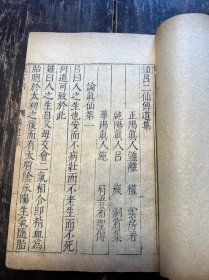 鍾呂二仙傳道集
正陽真人鍾離 權 雲房著
純陽真人呂 嵓 洞賓集
華陽真人施 肩吾希聖傳
論真仙第一
呂曰人之生也安而不病壯而不老生而不死
何道可致於此
鍾曰人之生自父母交會二氣相合即精血為
胎胞於太初之後而有太質陰承陽生氣隨胎